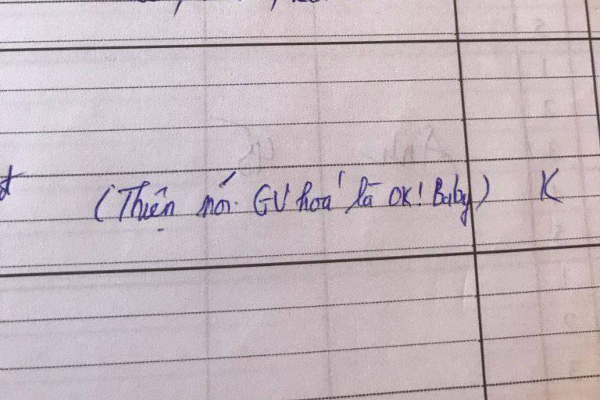 (Thiện nói GV hoá là OK! Baby) K